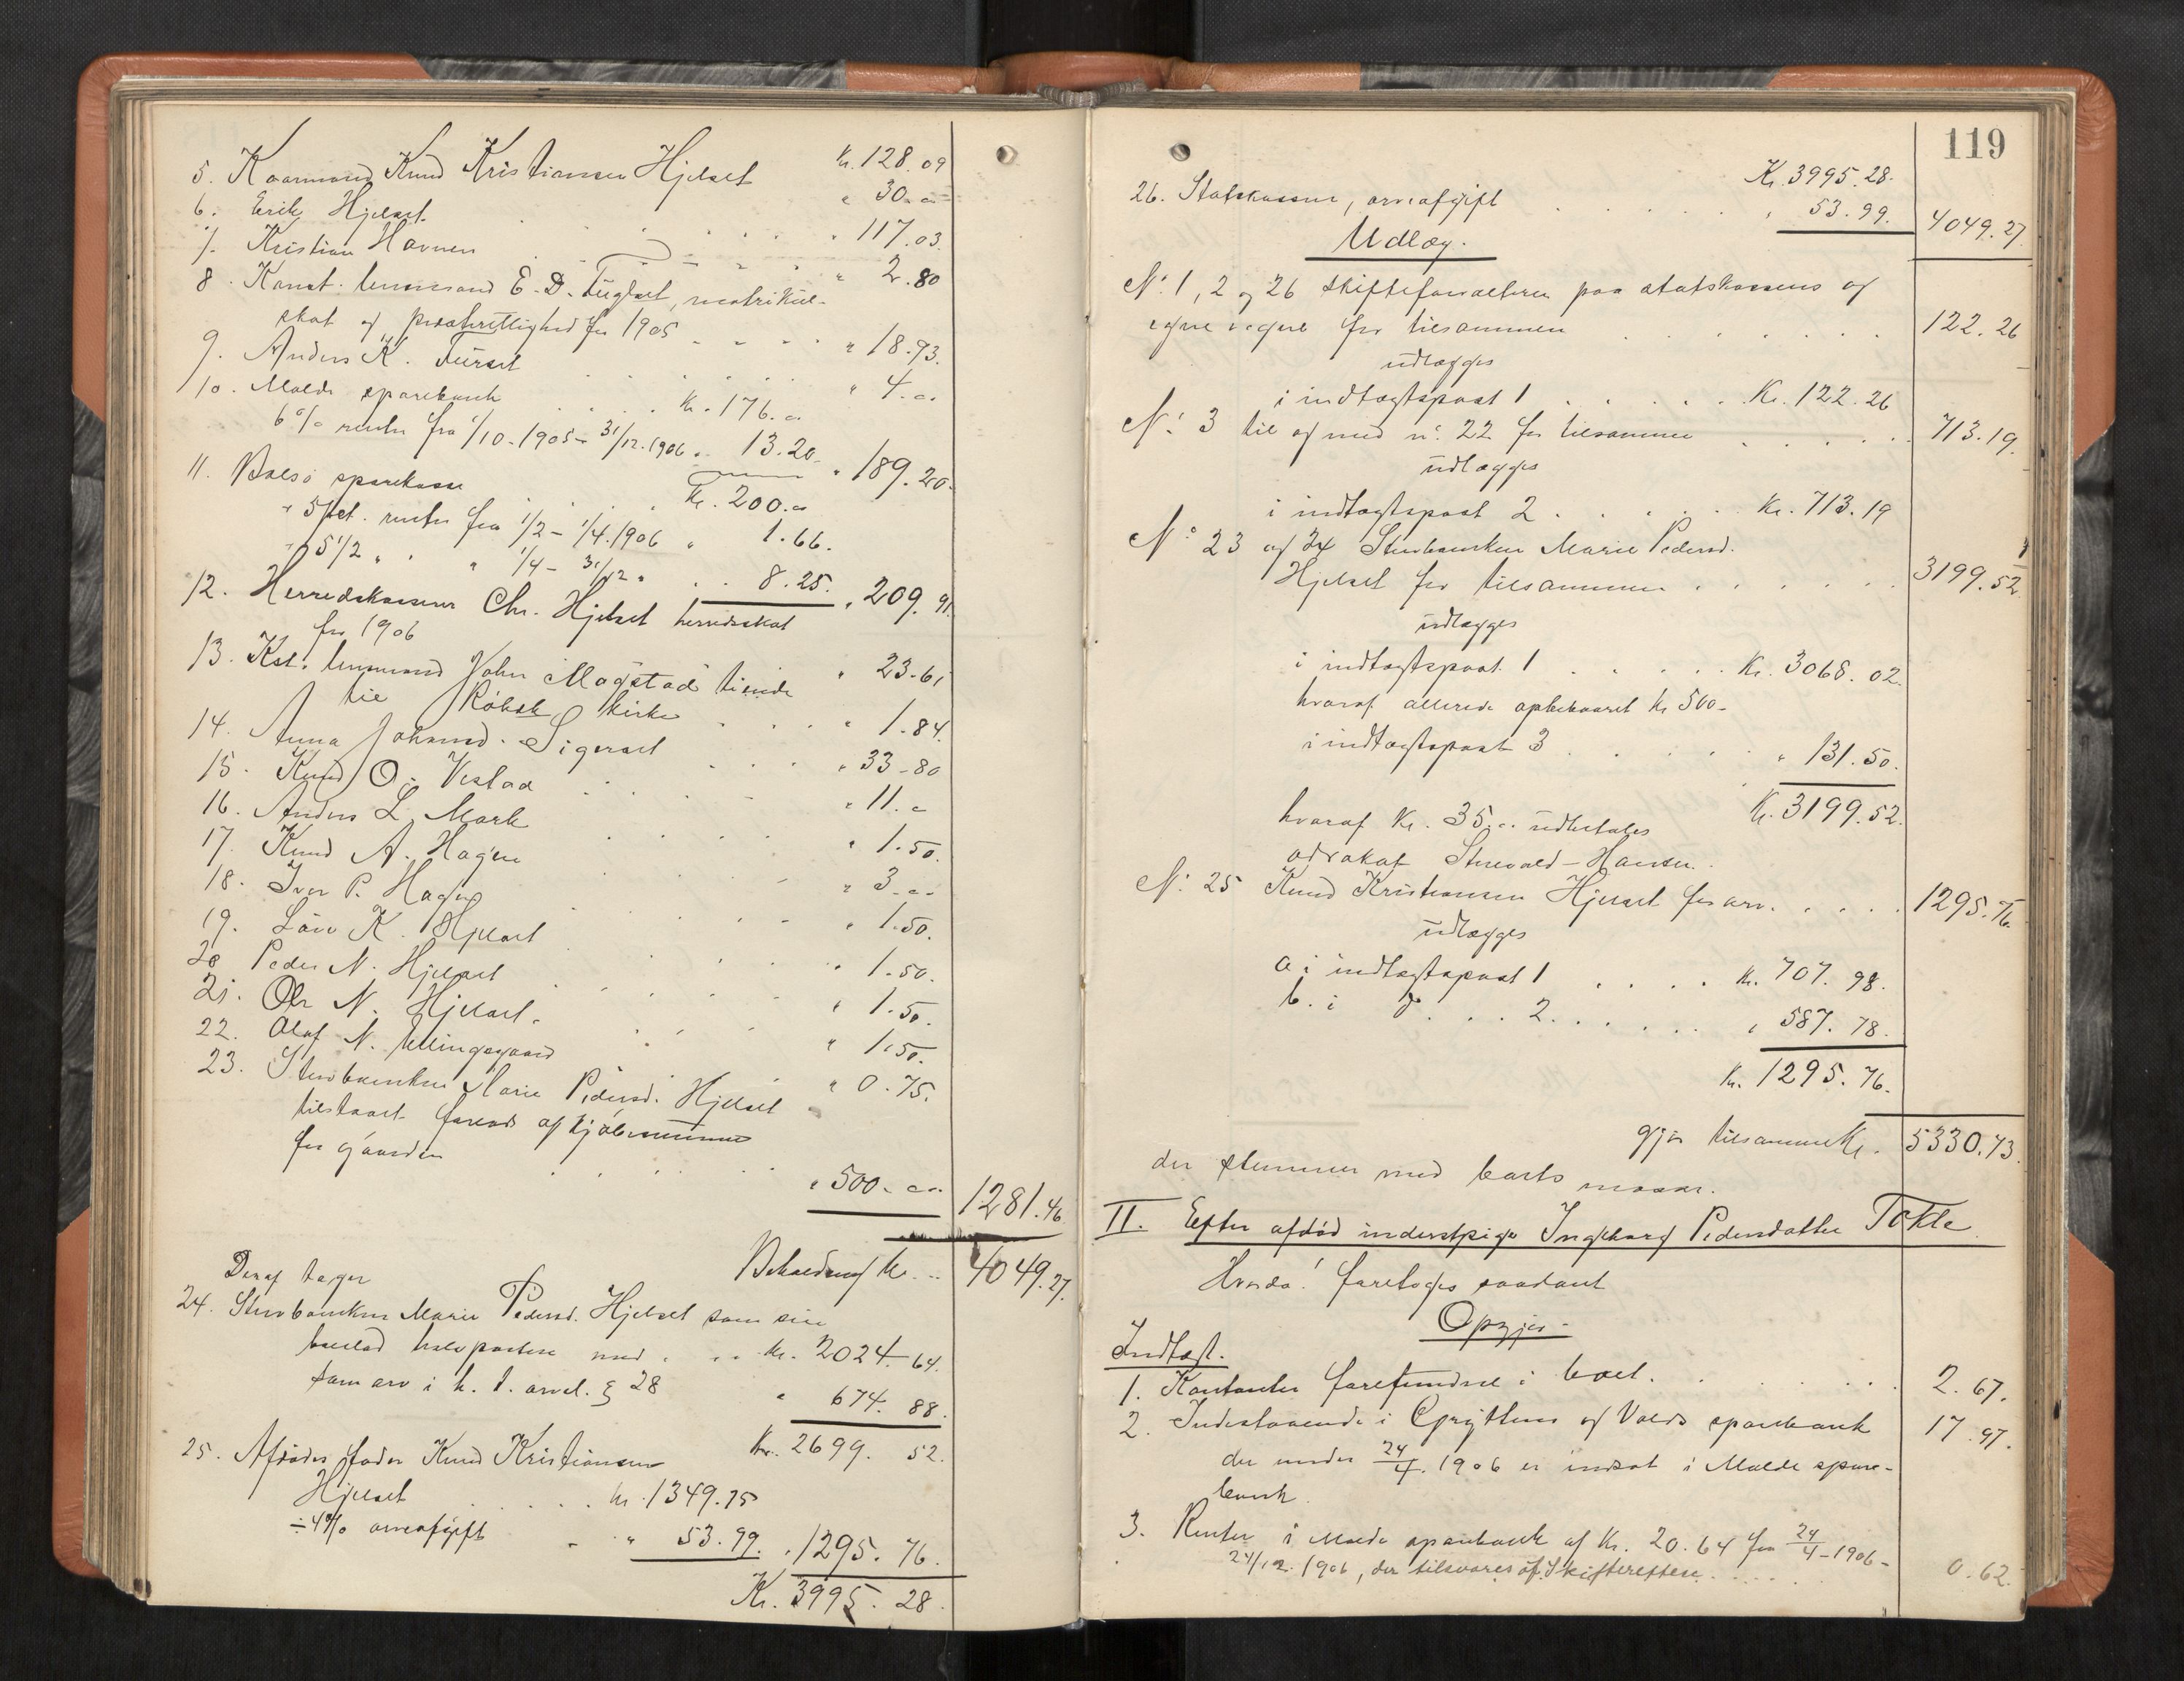 Kr. 128.09
5. Kaarmand Knud Kristiansen Hjelset
6. Erik Hjelset " 30.-
7. Kristian Havnen " 117.03.
8. Konst. lensmand E. D. Fuglset, matrikul- " 2.80
skat og for 1905 " 18.93.
9. Anders K. Furset " 4.-
10. Molde sparebank Kr. 176.-
6% renter fra 1/10-1905 - 31/12.1906 " 13.20 " 189.20.
11. Bolsø sparekasse Kr. 200.-
" 5 pct. renter fra 1/2 - 1/4.1906 " 1.66.
" 5 1/2 " " " 1/4 - 31/12 " 8.25. " 209.91.
12. Herredskasserer Chr. Hjelset herredsskat
for 1906 " 23.61
13. Kst. lensmand John Magstad tiende
til Røbek kirke " 1.84.
14. Anna Johansd. Sigerset " 33-80
15. Knud O. Vestad " 11.-
16. Anders L. Mork " 1.50.
17. Knud A. Hagen " 3.-
18. Iver P. Hagen " 1.50.
19. Lars K. Hjelset " 1.50.
20 Peder N. Hjelset " 1.50.
21. Ole N. Hjelset. " 1.50.
22. Olaf N. " 0.75.
23. Stervboenken Marie Pedersd. Hjelset
tilstaaet forlods af kjøbesummen
for gaarden " 500.- 1281.46
Beholdning Kr. 4049.27.
Deraf tager
24. Stervboenken Marie Pedersd. Hjelset som sin
boeslod halvparten med Kr. 2024.64.
som arv i h. t. arvel. § 28 " 674.88.
Kr. 2699.52.
25. Afdødes fader Knud Kristiansen
Hjelset Kr. 1349.75
÷ 4% arveafgift " 53.99. " 1295.76.
Kr. 3995.28.
119
Kr. 3995.28.
26. Statskassen, arveafgift " 53.99. 4049.27.
Udlæg.
No. 1, 2 og 26 Skifteforvalteren paa statskassens og
egne vegne for tilsammen 122.26
udlægges
i indtægtspost 1 Kr. 122.26
No. 3 til og med no. 22 for tilsammen 713.19.
udlægges
i indtægtspost 2 Kr. 713.19
No. 23 og 24 Stervboenken Marie Pedersd.
Hjelset for tilsammen 3199.52
udlægges
i indtægtspost 1 Kr. 3068.02.
hvoraf allerede opbebaaret Kr 500-
i indtægtspost 3 " 131.50.
Kr. 3199.52.
hvoraf Kr. 35.- udbetales
advokat
No. 25 Knud Kristiansen Hjelset for arv. 1295.76.
udlægges
a i indtægtspost 1 Kr. 707.98.
b. i do. 2. " 587.78.
Kr. 1295.76.
gjør tilsammen Kr. 5330.73.
der stemmer med boets masse.
II. Efter afdød inderstpige Ingeborg Pedersdatter Tokle
Hvorda! foretoges saadant
Opgjør.
Indtægt.
1. Kontanter forefundne i boet. 2.67.
2. Indestaaende i Grytten og Volds sparebank 17.97.
der under 24/4.1906 er indsat i Molde spare-
bank.
3. Renter i Molde sparebank af Kr. 20.64 fra 24/4-1906-
24/12.1906, der tilsvares af Skifteretten. 0.62.